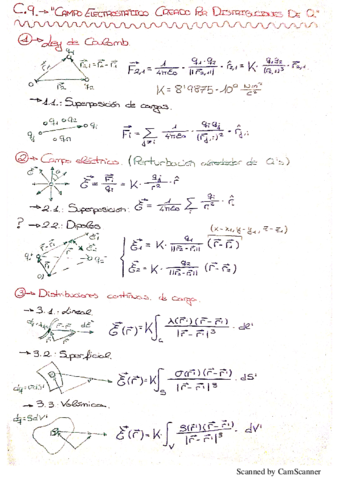 C.9.- "CAMPO ELECTROSTÁTICO CREADO POR DISTRIBUCIONES DE Q."
① → Ley de Coulomb
F₂,₁ = 1/4πε₀ · q₁·q₂/||r₂,₁||² · r̂₂,₁ = K · q₁q₂/|r₂,₁|² · r̂₂,₁
K = 8'9875·10⁹ N·m²/C²
→ 1.1.: Superposición de cargas.
Fᵢ = Σ j≠i 1/4πε₀ · qᵢqⱼ/|rⱼ,ᵢ|² · r̂ⱼ,ᵢ
② → Campo eléctrico. (Perturbación alrededor de Q's)
E = F/qᵢ = K · qᵢ/r² · r̂
→ 2.1.: Superposición: E = 1/4πε₀ Σ qᵢ/r² · r̂
? → 2.2.: Dipolos
E₁ = K · q₁/||r-r₁|| · (r-r₁)
E₂ = K · q₂/||r-r₂|| (r-r₂)
③ → Distribuciones continuas de carga.
→ 3.1.: Lineal
E(r) = K ∫L λ(r')(r-r')/|r-r'|³ · dl'
→ 3.2.: Superficial
dq=σds'
E(r) = K ∫S σ(r')(r-r')/|r-r'|³ · dS'
→ 3.3 Volúmica
dq=ρdV'
E(r) = K · ∫V ρ(r')(r-r')/|r-r'|³ · dV'
Scanned by CamScanner